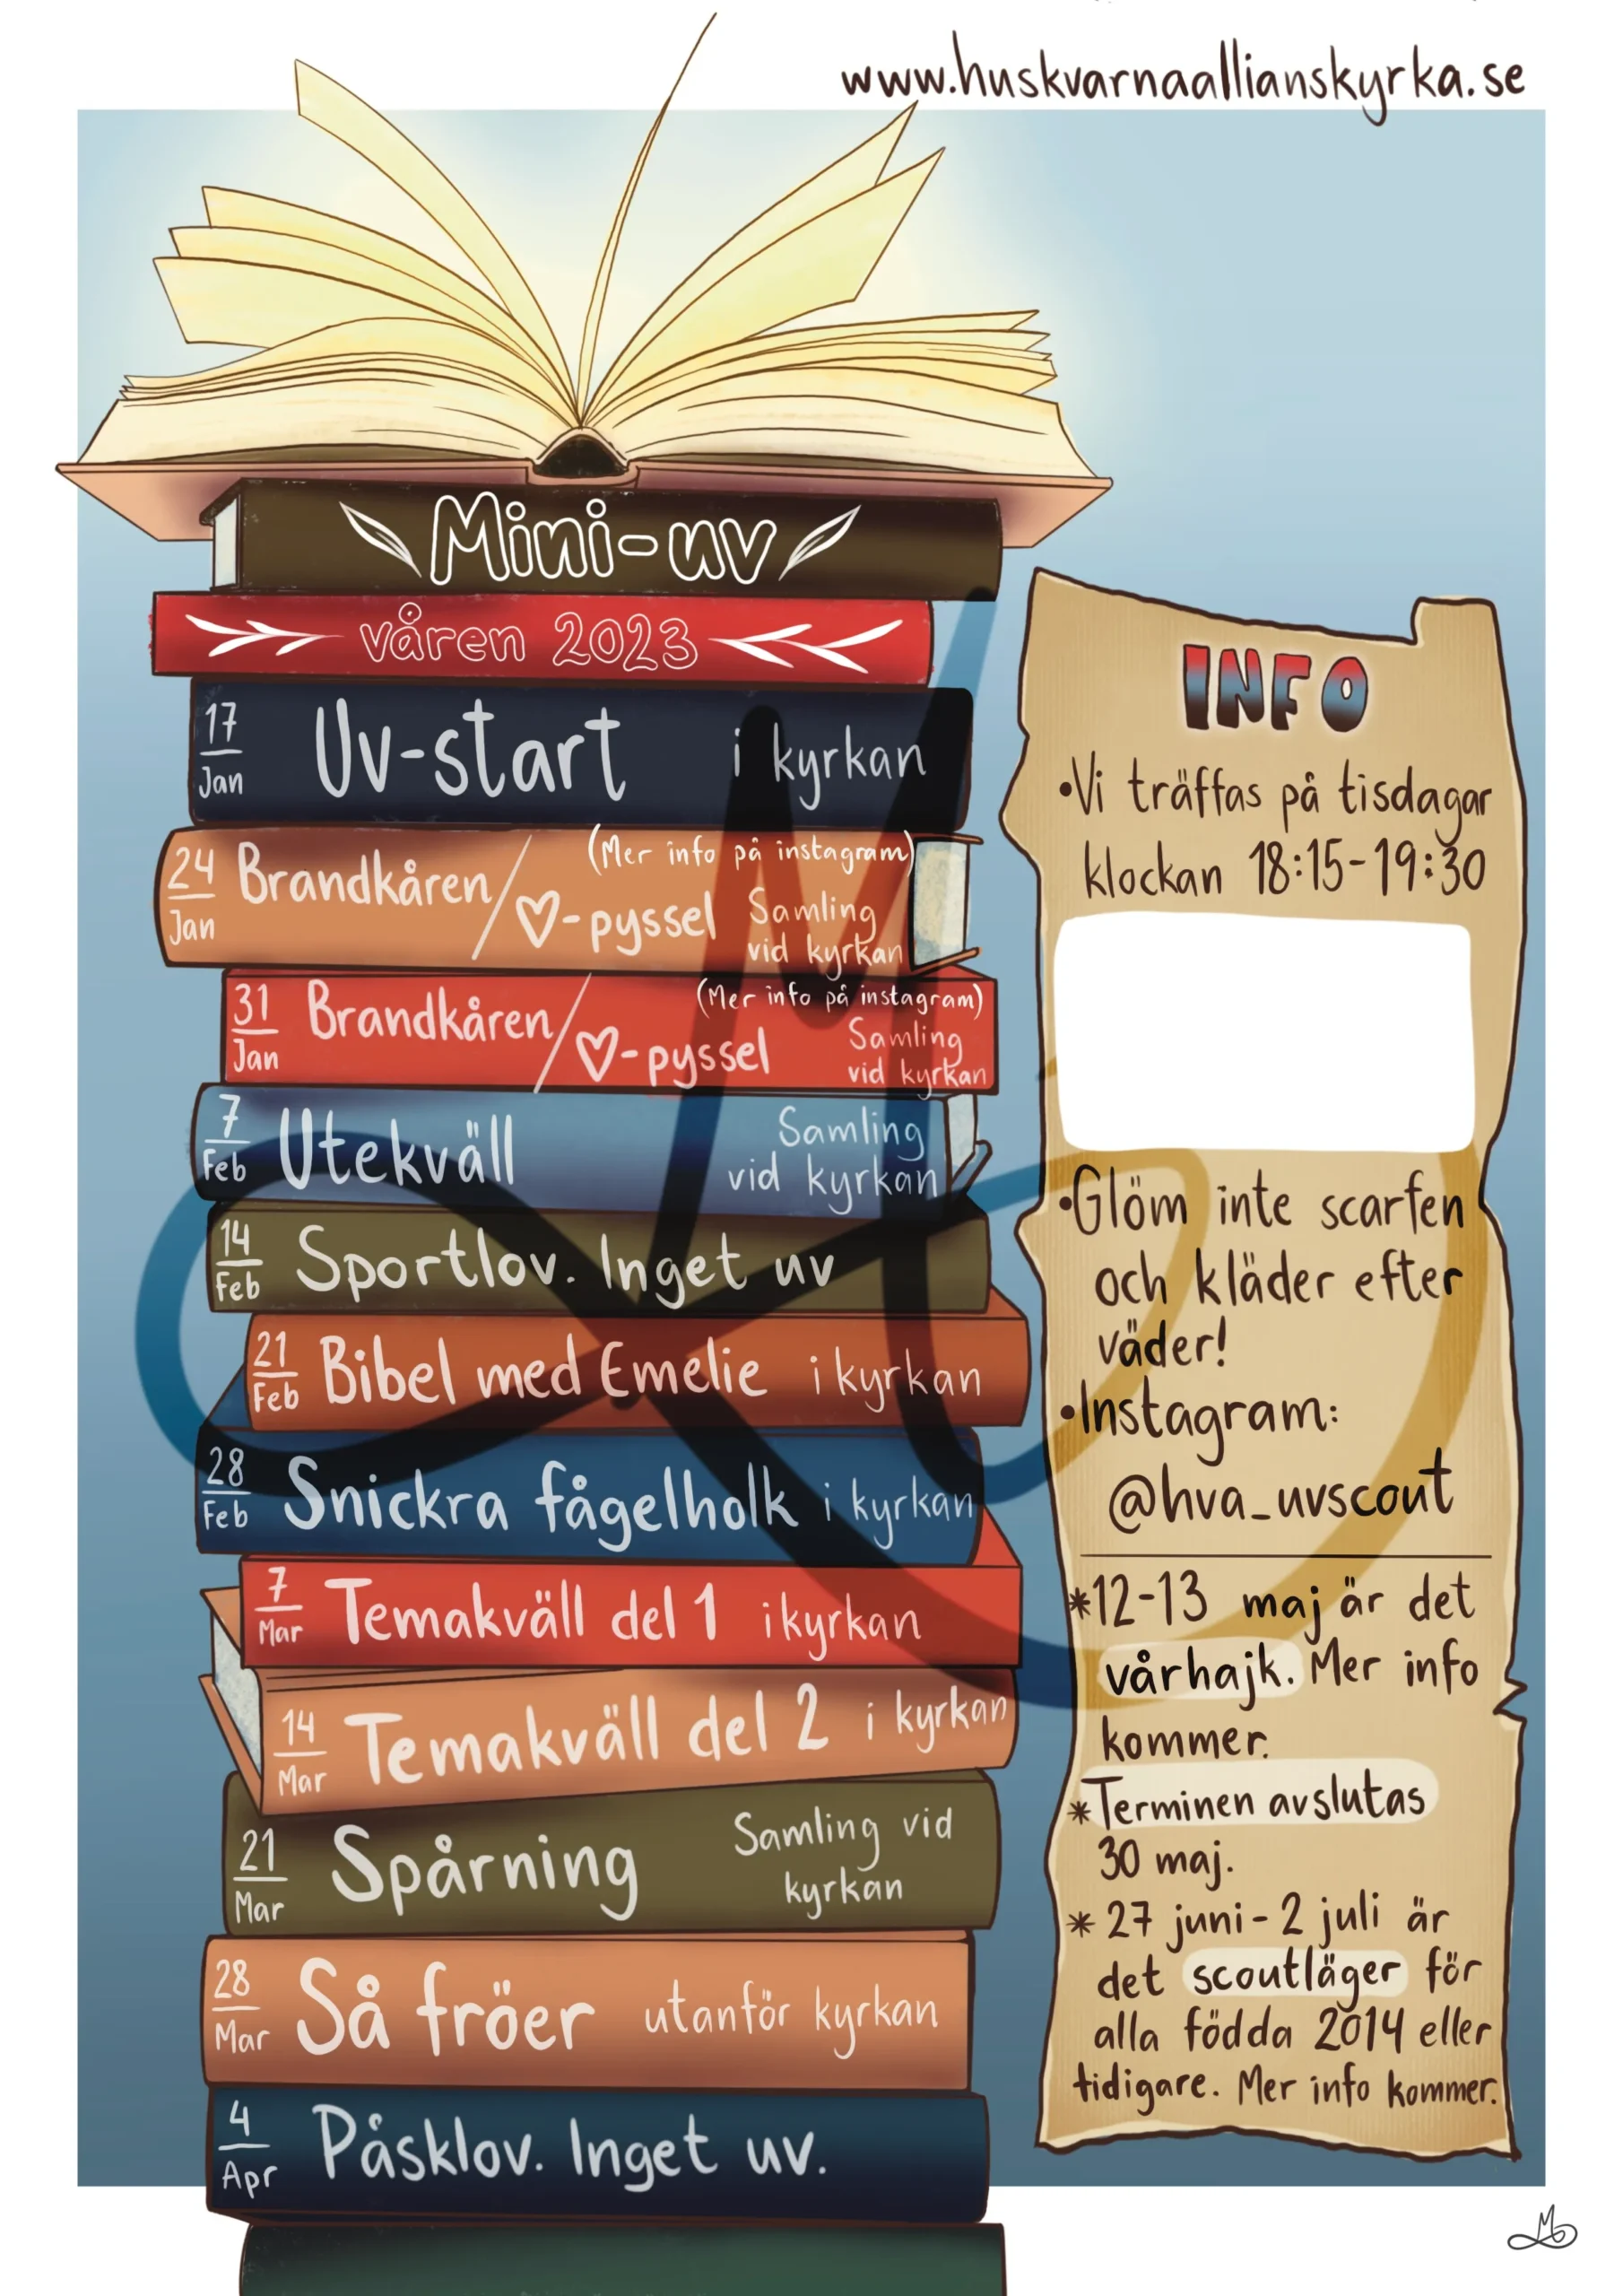 www.huskvarnaallianskyrka.se
Mini-uv
våren 2023
17
Jan
Uv-start i kyrkan
24
Jan
Brandkåren/
(Mer info på instagram)
♡-pyssel
Samling
vid kyrkan
31
Jan
Brandkåren/
(Mer info på instagram)
♡-pyssel
Samling
vid kyrkan
7
Feb
Utekväll
Samling
vid kyrkan
14
Feb
Sportlov. Inget uv
21
Feb
Bibel med Emelie i kyrkan
28
Feb
Snickra fågelholk i kyrkan
7
Mar
Temakväll del 1 i kyrkan
14
Mar
Temakväll del 2 i kyrkan
21
Mar
Spårning
Samling vid
kyrkan
28
Mar
Så fröer utanför kyrkan
4
Apr
Påsklov. Inget uv.
INFO
•Vi träffas på tisdagar
klockan 18:15-19:30
•Glöm inte scarfen
och kläder efter
väder!
•Instagram:
@hva_uvscout
*12-13 maj är det
vårhajk. Mer info
kommer.
*Terminen avslutas
30 maj.
* 27 juni-2 juli är
det scoutläger för
alla födda 2014 eller
tidigare. Mer info kommer.